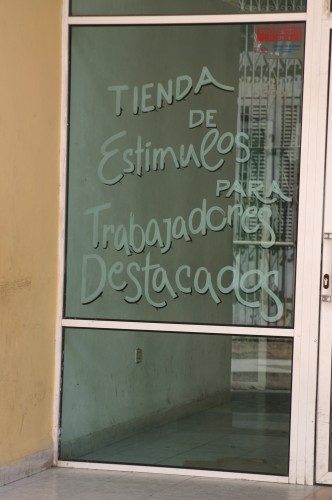 TIENDA
DE
Estimulos
PARA
Trabajadores
Destacados